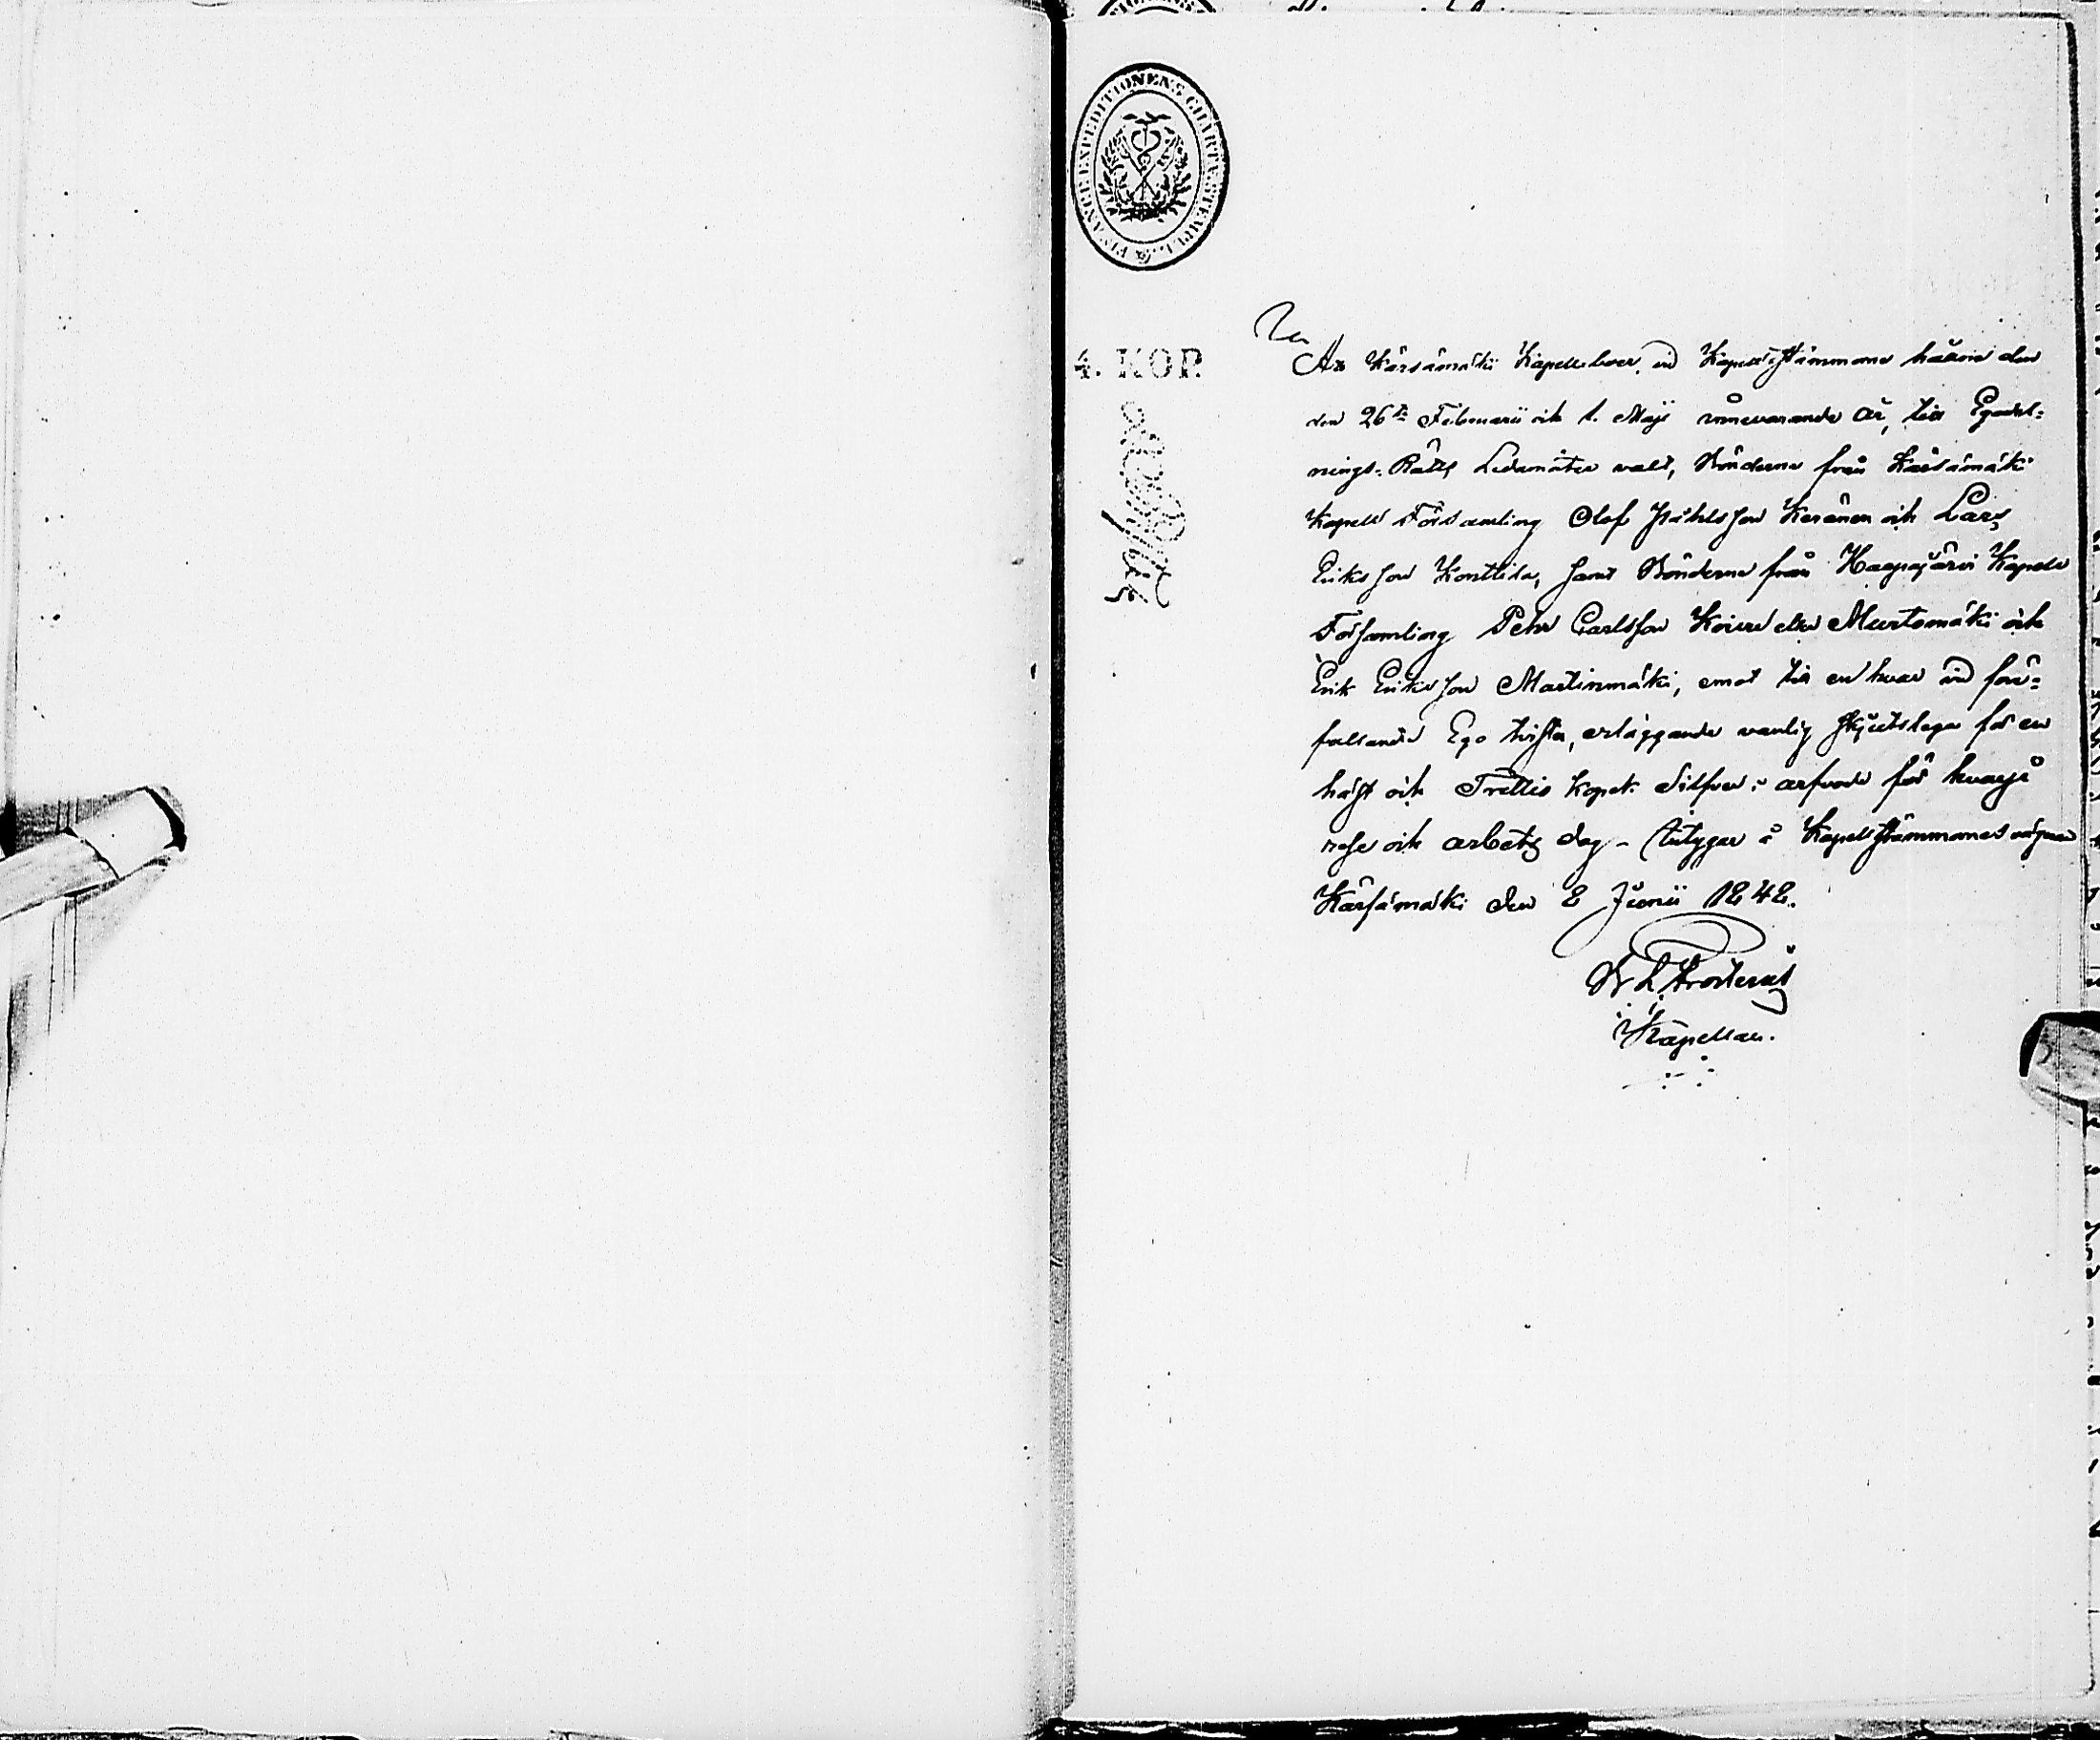 FINANCE EXPEDITIONENS CHARTÆ STEMPEL
4. KOP.
At Kärsämäki Kapelleboer, vid Kapell-Stämmorne hållne den
den 26te Februarii och 1. Maji innevarande år, till Egodel=
nings-Rätts Ledamöter valt, Bönderne från Kärsämäki
Kapell Församling Olof Påhlsson Keränen och Lars
Eriksson Konttila, samt Bönderne från Haapajärvi Kapell
Församling Pehr Carlsson eller Murtomäki och
Erik Eriksson Martinmäki, emot till en hvar vid före=
fallande Ego tvister, erläggande vanlig skjutslega för en
häst och Trettio kopek Silfver i arfvode för hvarje
rese och arbets dag - intygar å Kapell Stämmones vägnar
Kärsämäki den 8 Junii 1848.
Kapellan.